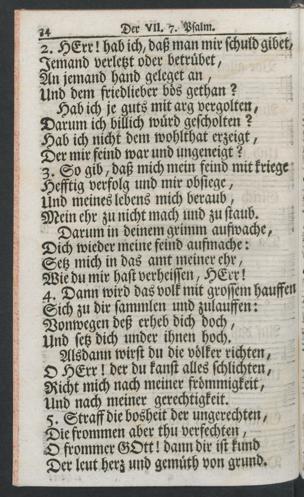 14 Der VII. 7. Psalm.
2. HErr! hab ich, daß man mir schuld gibet,
Jemand verletzt oder betrübet,
An jemand hand geleget an,
Und dem friedlieber bös gethan?
Hab ich je guts mit arg vergolten,
Darum ich billich würd gescholten?
Hab ich nicht dem wohlthat erzeigt,
Der mir feind war und ungeneigt?
3. So gib, daß mich mein feind mit kriege
Hefftig verfolg und mir obsiege,
Und meines lebens mich beraub,
Mein ehr zu nicht mach und zu staub.
Darum in deinem grimm aufwache,
Dich wieder meine feind aufmache:
Setz mich in das amt meiner ehr,
Wie du mir hast verheissen, HErr!
4. Dann wird das volk mit grossem hauffen
Sich zu dir sammlen und zulauffen:
Vonwegen deß erheb dich doch,
Und setz dich under ihnen hoch.
Alsdann wirst du die völker richten,
O HErr! der du kanst alles schlichten,
Richt mich nach meiner frömmigkeit,
Und nach meiner gerechtigkeit.
5. Straff die boßheit der ungerechten,
Die frommen aber thu verfechten,
O frommer GOtt! dann dir ist kund
Der leut herz und gemüth von grund.